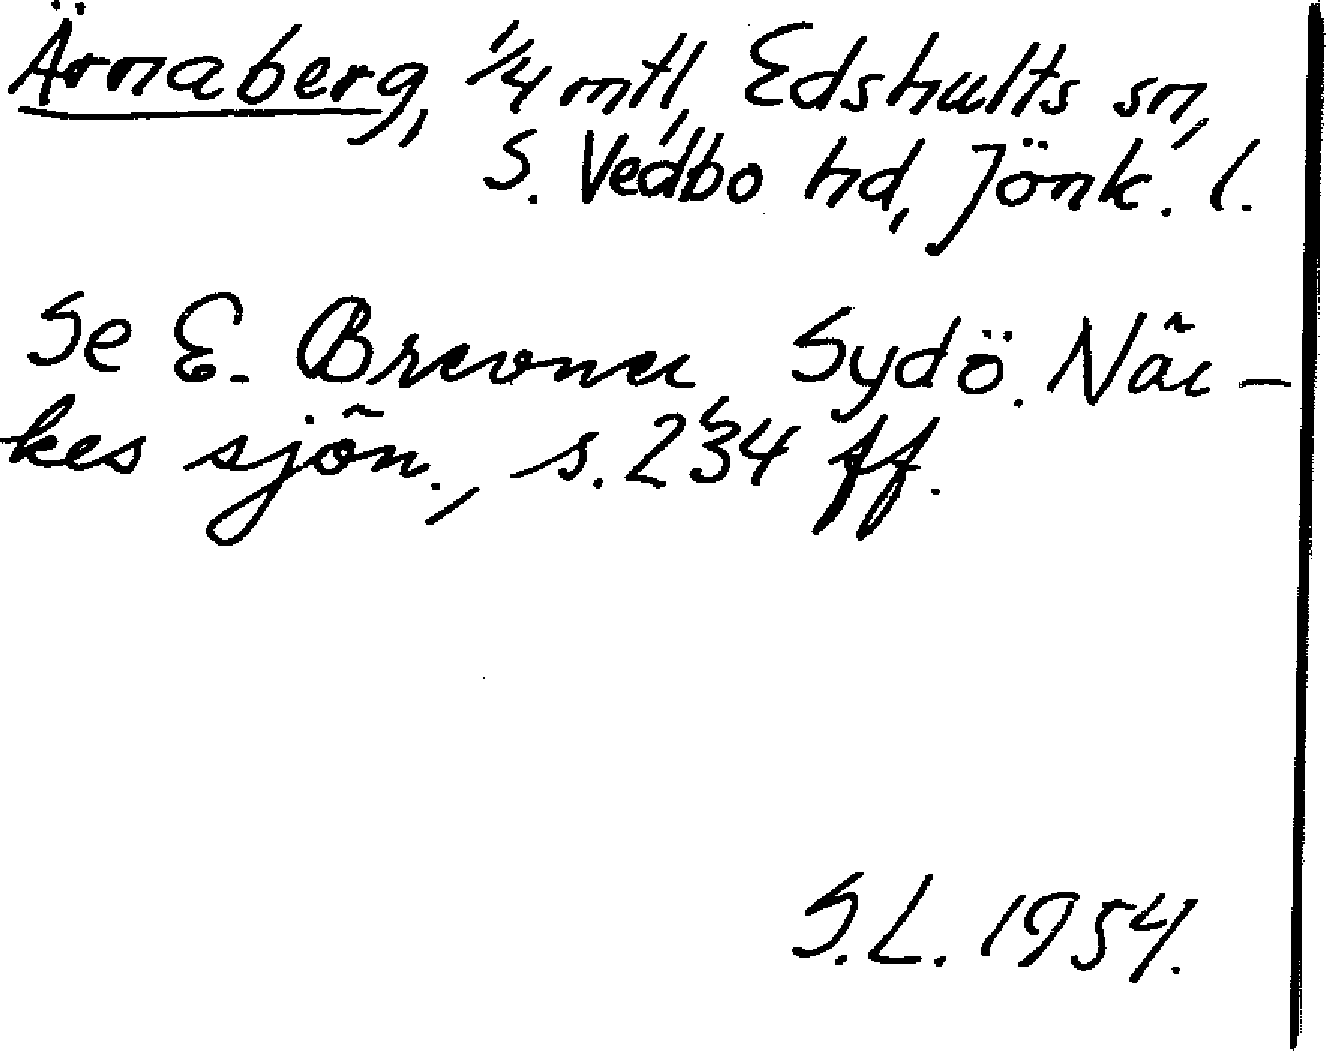 Ärnaberg, 1/4 mtl, Edshults sn,
S. Vedbo hd, Jönk. l.
Se E. Brevner Sydö. När-
kes sjön., s. 234 ff.
S.L. 1954.